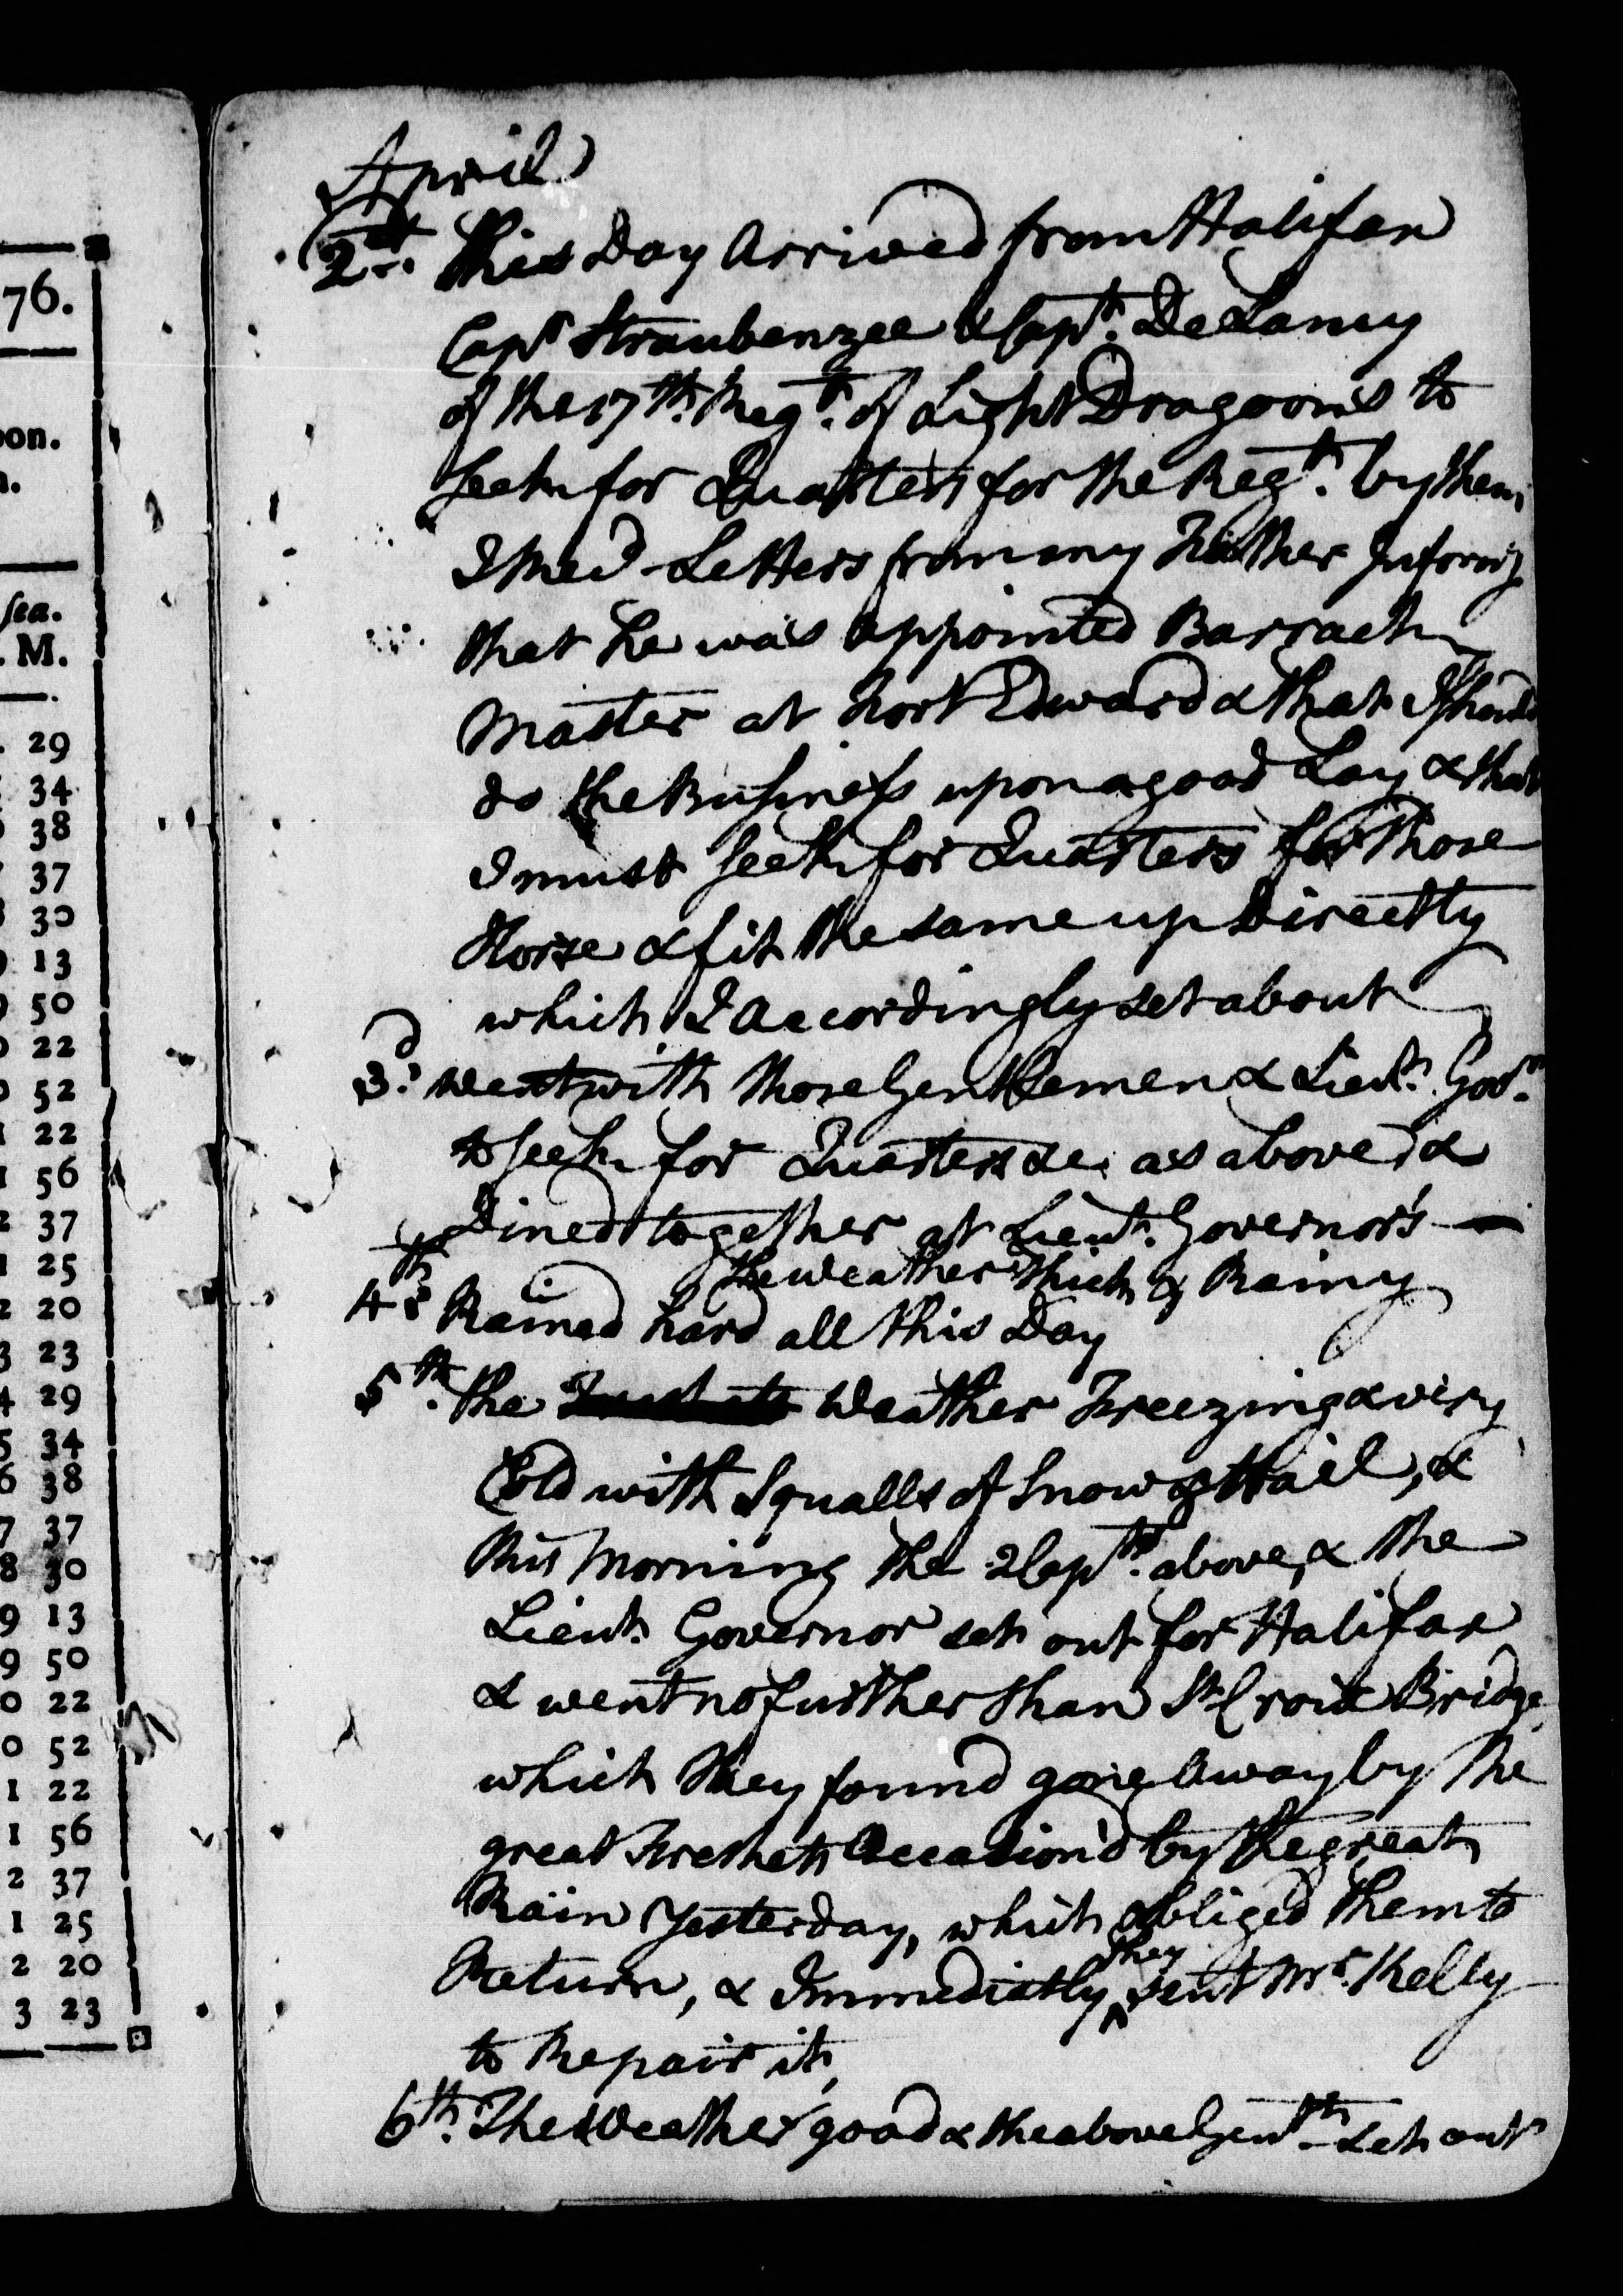 76.
oon.
n.
sea.
. M.
. 29
34
38
37
30
13
50
22
52
22
56
2 37
1 25
2 20
3 23
4 29
5 34
6 38
7 37
8 30
9 13
9 50
0 22
0 52
1 22
1 56
2 37
1 25
2 20
3 23
April
2d. This Day Arrived from Halifax
Capt Straubenzee & Capt. DeLancy
of the 17th. Regt. of Light Dragoons to
seek for Quarters for the Regt. by them
I Rec'd Letters from my Father Informg
that he was appointed Barrack
Master at Fort Edward & that I should
do the Business upon a good Lay & that
I must seek for Quarters for those
Horse & fit the same up Directly
which I Accordingly set about
3d. Went with those Gentlemen & Lieut. Govr.
to seek for Quarters &c. as above &
Dined together at Lieut. Governor's —
the weather thick & Rainy
4th Rained hard all this Day
5th. the Weather Freezing & very
Cold with Squalls of Snow & Hail, &
this Morning the 2 Capts. above, & the
Lieut. Governor set out for Halifax
& went no further than St. Croix Bridge
which they found gone Away by the
great Freshet Occasion'd by the great
Rain Yesterday, which obliged them to
Return, & Immediatly they sent Mr. Kelly
to Repair it,
6th. The Weather good & the above Gentn. set out